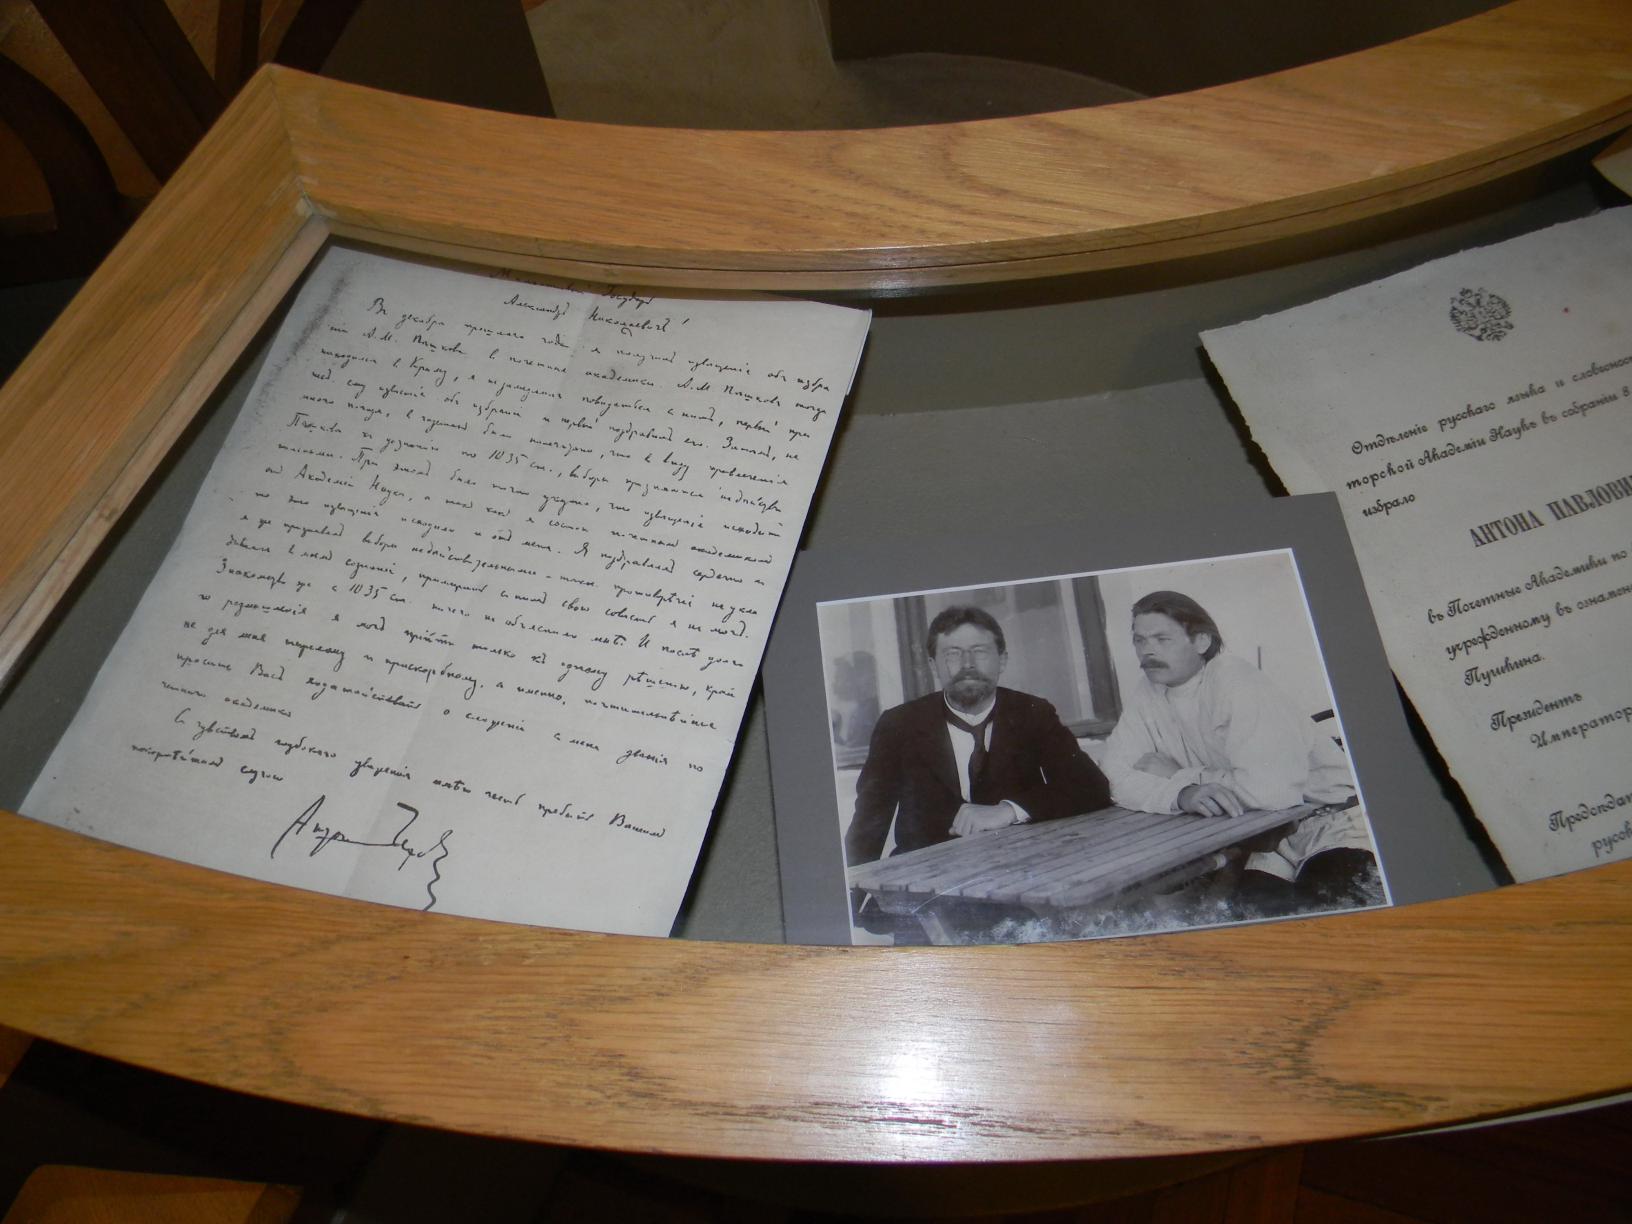 Милостивый Государь
Александръ Николаевичъ!
Въ декабрѣ прошлаго года я получилъ извѣщеніе объ избра
ніи А.М. Пѣшкова въ почетные академики. А.М Пѣшковъ тогда
находился въ Крыму, я не замедлилъ повидаться съ нимъ, первый при
несъ ему извѣстіе объ избраніи и первый поздравилъ его. Затѣмъ, не
много погодя, въ газетахъ было напечатано, что въ виду привлеченія
Пѣшкова къ дознанію по 1035 ст., выборы признаются недѣйстви
тельными. При этомъ было точно указано, что извѣщеніе исходитъ
отъ Академіи Наукъ, а такъ какъ я состою почетнымъ академикомъ
то это извѣщеніе исходило и отъ меня. Я поздравлялъ сердечно и
я же признавалъ выборы недѣйствительными - такое противорѣчіе не укла
дывалось въ моемъ сознаніи, примирить съ нимъ свою совѣсть я не могъ.
Знакомство же съ 1035 ст. ничего не объяснило мнѣ. И послѣ долга
го размышленія я могъ прійти только къ одному рѣшенію, край
не для меня тяжелому и прискорбному, а именно, почтительнѣйше
просить Васъ ходатайствовать о сложеніи съ меня званія по
четнаго академика
Съ чувствомъ глубокаго уваженія имѣю честь пребыть Вашимъ
покорнѣйшимъ слугою
Антон Чехов
Отдѣленіе русскаго языка и словеснос
торской Академіи Наукъ въ собраніи 8
избрало
АНТОНА ПАВЛОВИ
въ Почетные Академики по
учрежденному въ ознамен
Пушкина.
Президентъ
Император
Предсѣдат
русс